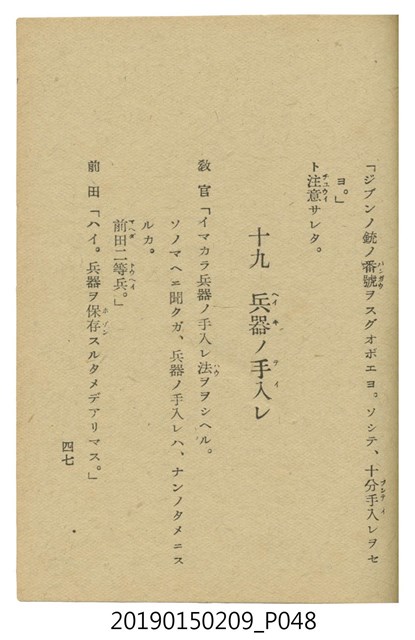 「ジブンノ銃ノ番號ヲスグオボエヨ。ソシテ、十分手入レヲセ
ヨ。」
ト注意サレタ。
十九 兵器ノ手入レ
教官「イマカラ兵器ノ手入レ法ヲヲシヘル。
ソノマヘニ聞クガ、兵器ノ手入レハ、ナンノタメニス
ルカ。
前田二等兵。」
前田「ハイ。兵器ヲ保存スルタメデアリマス。」
四七
20190150209_P048